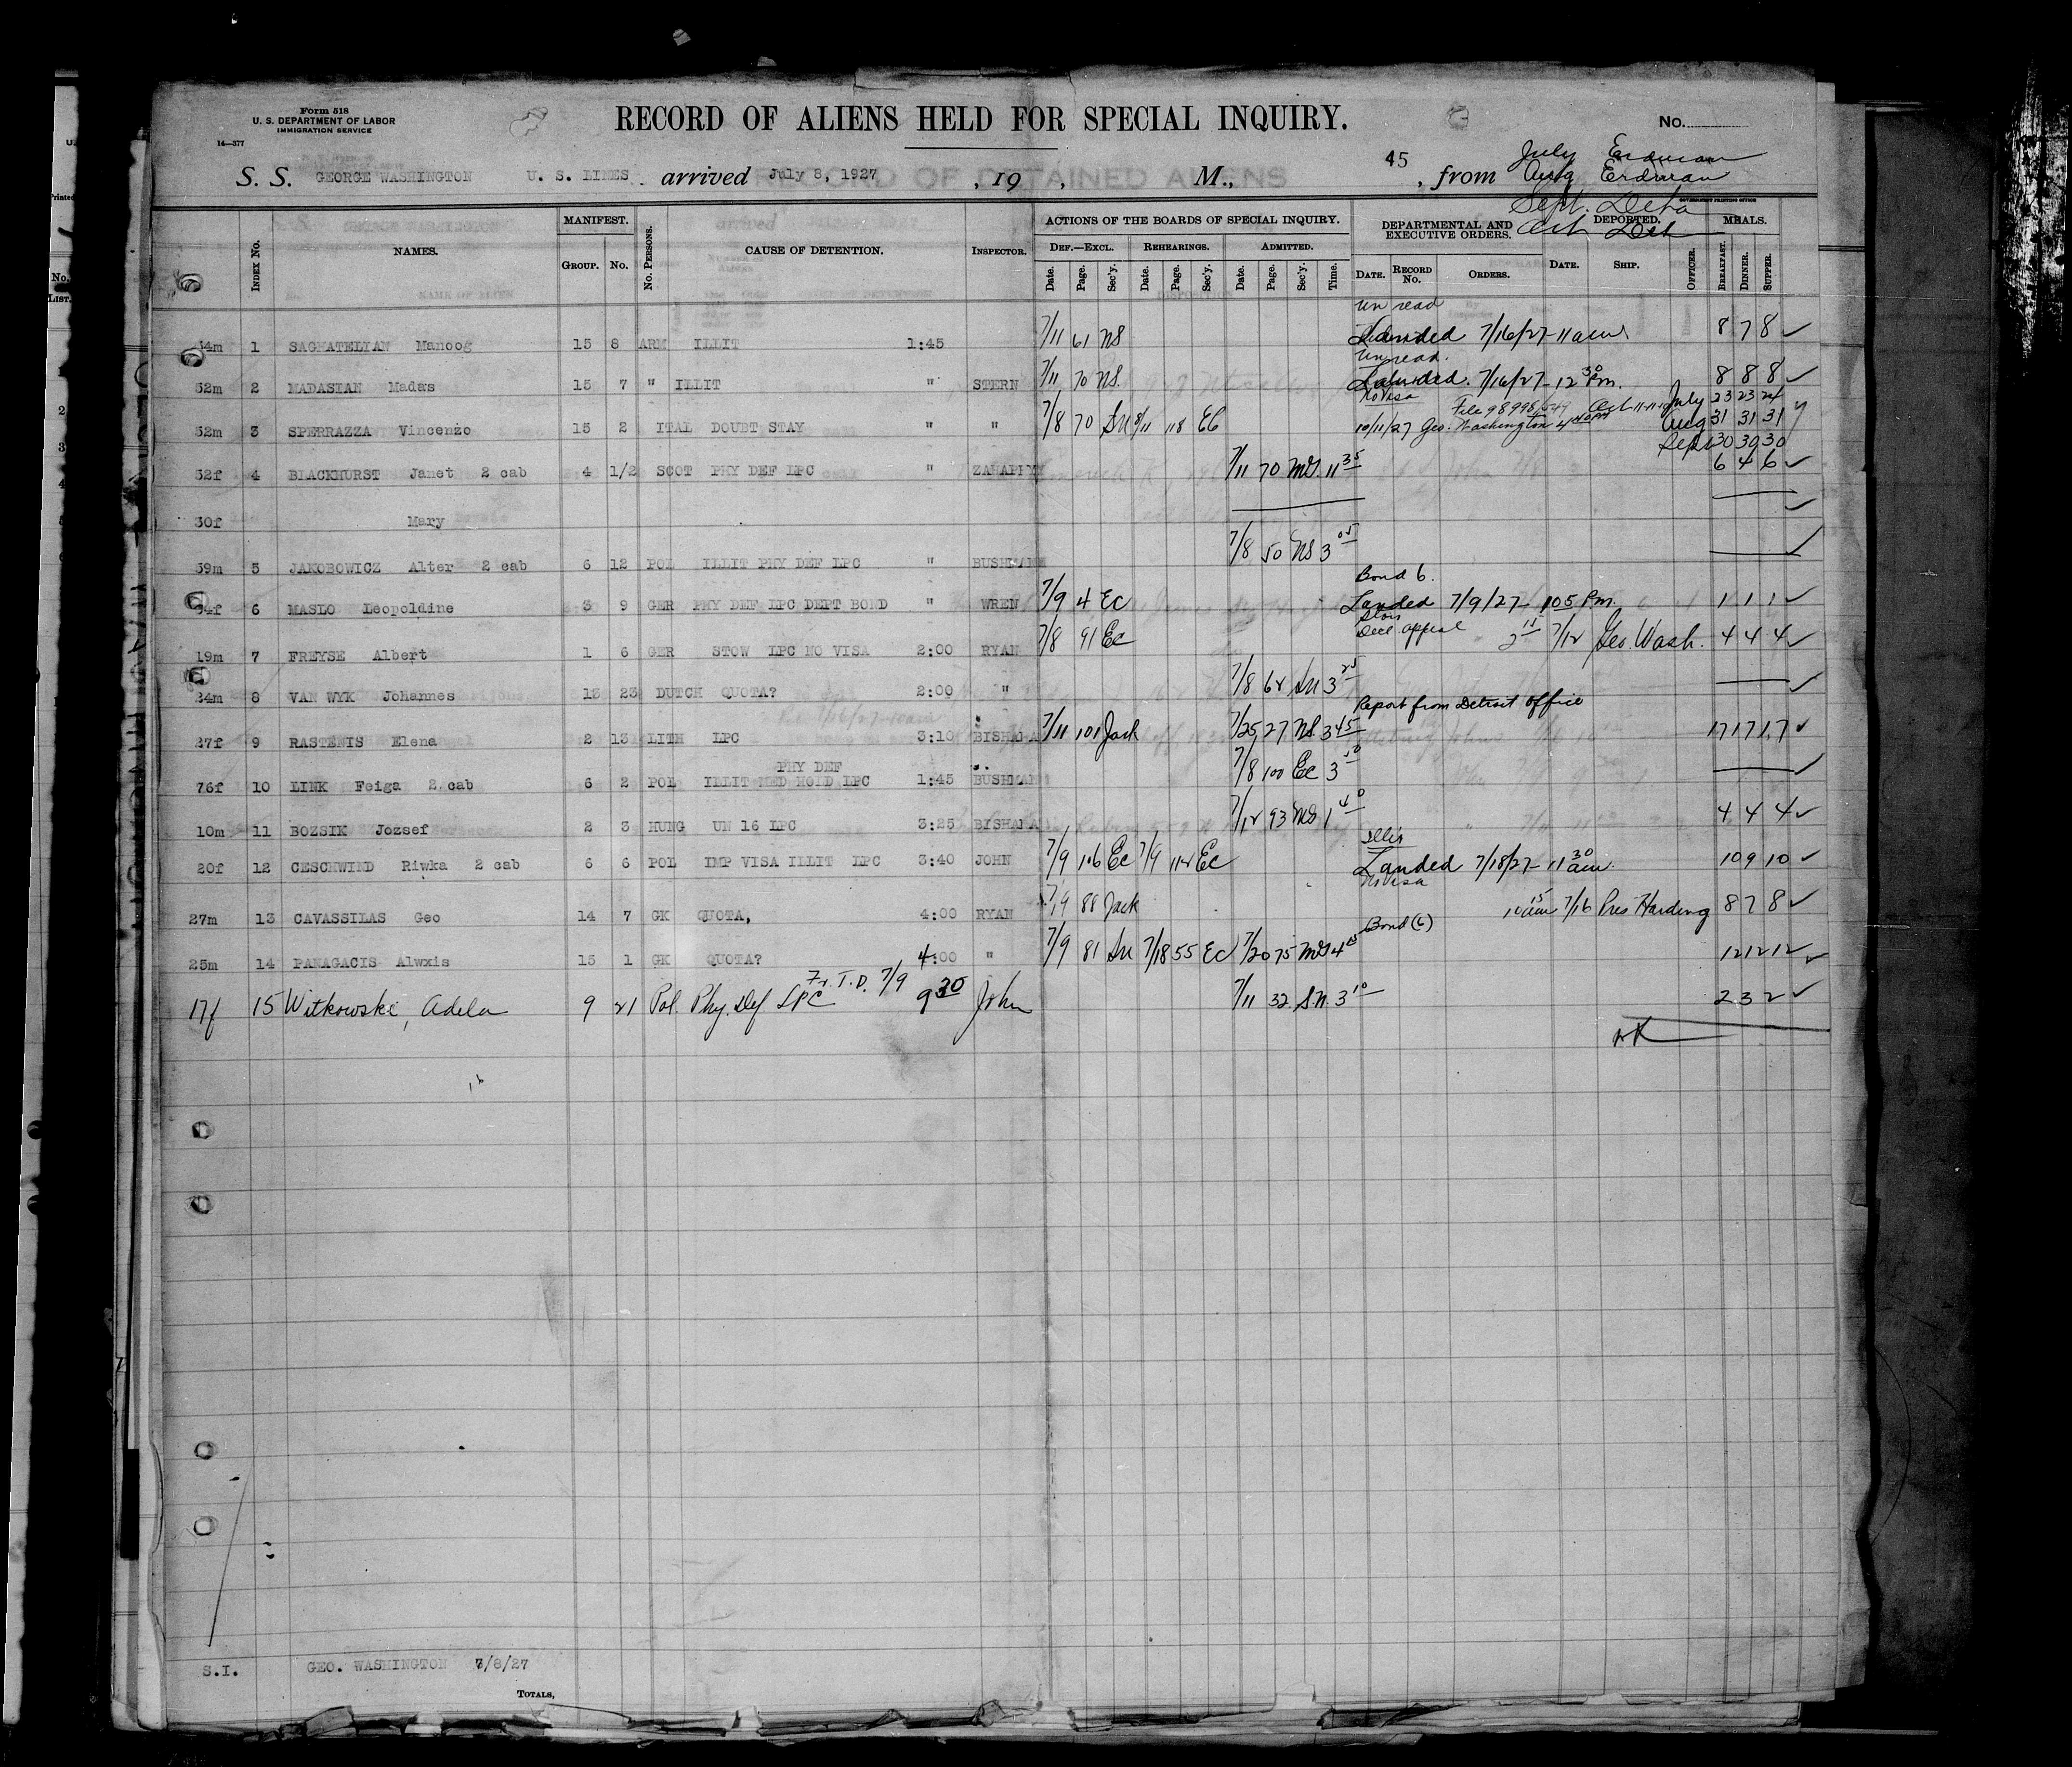 Form 518
U. S. DEPARTMENT OF LABOR
IMMIGRATION SERVICE
14—377
RECORD OF ALIENS HELD FOR SPECIAL INQUIRY.
No.
S. S. GEORGE WASHINGTON U. S. LINES arrived July 8, 1927 , 19 , M., 45 , from
July Erdman
Aug Erdman
Sept.
Oct
INDEX No.
NAMES.
MANIFEST.
GROUP. No.
No. PERSONS.
CAUSE OF DETENTION.
INSPECTOR.
ACTIONS OF THE BOARDS OF SPECIAL INQUIRY.
DEF.—EXCL. REHEARINGS. ADMITTED.
Date. Page. Sec'y. Date. Page. Sec'y. Date. Page. Sec'y. Time.
DEPARTMENTAL AND EXECUTIVE ORDERS.
DATE. RECORD No. ORDERS.
DEPORTED.
DATE. SHIP.
OFFICER.
MEALS.
BREAKFAST. DINNER. SUPPER.
un read
1 SAGHATELYAN Manoog 15 8 ARM ILLIT 1:45 7/11 61 NS 7/16/27-11am 8 7 8
un read.
52m 2 MADASIAN Madas 15 7 " ILLIT " STERN 7/11 70 NS. 7/16/27-12 30 Pm. 8 8 8
No Visa
July 23 23 24
52m 3 SPERRAZZA Vincenzo 15 2 ITAL DOUBT STAY " " 7/8 70 8/11 118 EC 10/11/27 Geo. Washington Aug 31 31 31
Sept 30 30 30
52f 4 BLACKHURST Janet 2 cab 4 1/2 SCOT PHY DEF LPC " 7/11 70 MS. 11 35 6 4 6
30f Mary
59m 5 JAKOBOWICZ Alter 2 cab 6 12 POL ILLIT PHY DEF LPC " BUSHMAN 7/8 50 NS 3 05
Bond 6.
6 MASLO Leopoldine 3 9 GER PHY DEF LPC DEPT BOND " WREN 7/9 4 EC Landed 7/9/27- 105 Pm. 1 1 1
Stow
Decl. appeal
19m 7 FREYSE Albert 1 6 GER STOW LPC NO VISA 2:00 RYAN 7/8 91 EC 2 15 7/12 Geo. Wash. 4 4 4
24m 8 VAN WYK Johannes 13 23 DUTCH QUOTA? 2:00 " 7/8 3 25
Report from Detroit office
27f 9 RASTENIS Elena 2 13 LITH LPC 3:10 7/11 101 Jack 7/25 27 NS 3 45 17 17 17
PHY DEF
76f 10 LINK Feiga 2 cab 6 2 POL ILLIT MED HOLD LPC 1:45 BUSHMAN 7/8 100 EC 3
10m 11 BOZSIK Jozsef 2 3 HUNG UN 16 LPC 3:25 7/12 93 MS 1 40 4 4 4
20f 12 CESCHWIND Riwka 2 cab 6 6 POL IMP VISA ILLIT LPC 3:40 JOHN 7/9 106 EC 7/9 EC Landed 7/18/27- 11 30 am. 10 9 10
No Visa
27m 13 CAVASSILAS Geo 14 7 GK QUOTA, 4:00 RYAN 88 Jack 10 15 am 7/16 Pres Harding 8 7 8
Bond (6)
25m 14 PANAGACIS Alwxis 15 1 GK QUOTA? 4:00 " 7/9 81 7/18 55 EC 7/20 75 MS 4 12 12 12
T.D. 7/9
17f 15 Witkowski, Adela 9 21 Pol. Phy. Def LPC 9 30 John 7/11 32 S.N. 3 10 2 3 2
S.I. GEO. WASHINGTON 7/8/27
TOTALS,